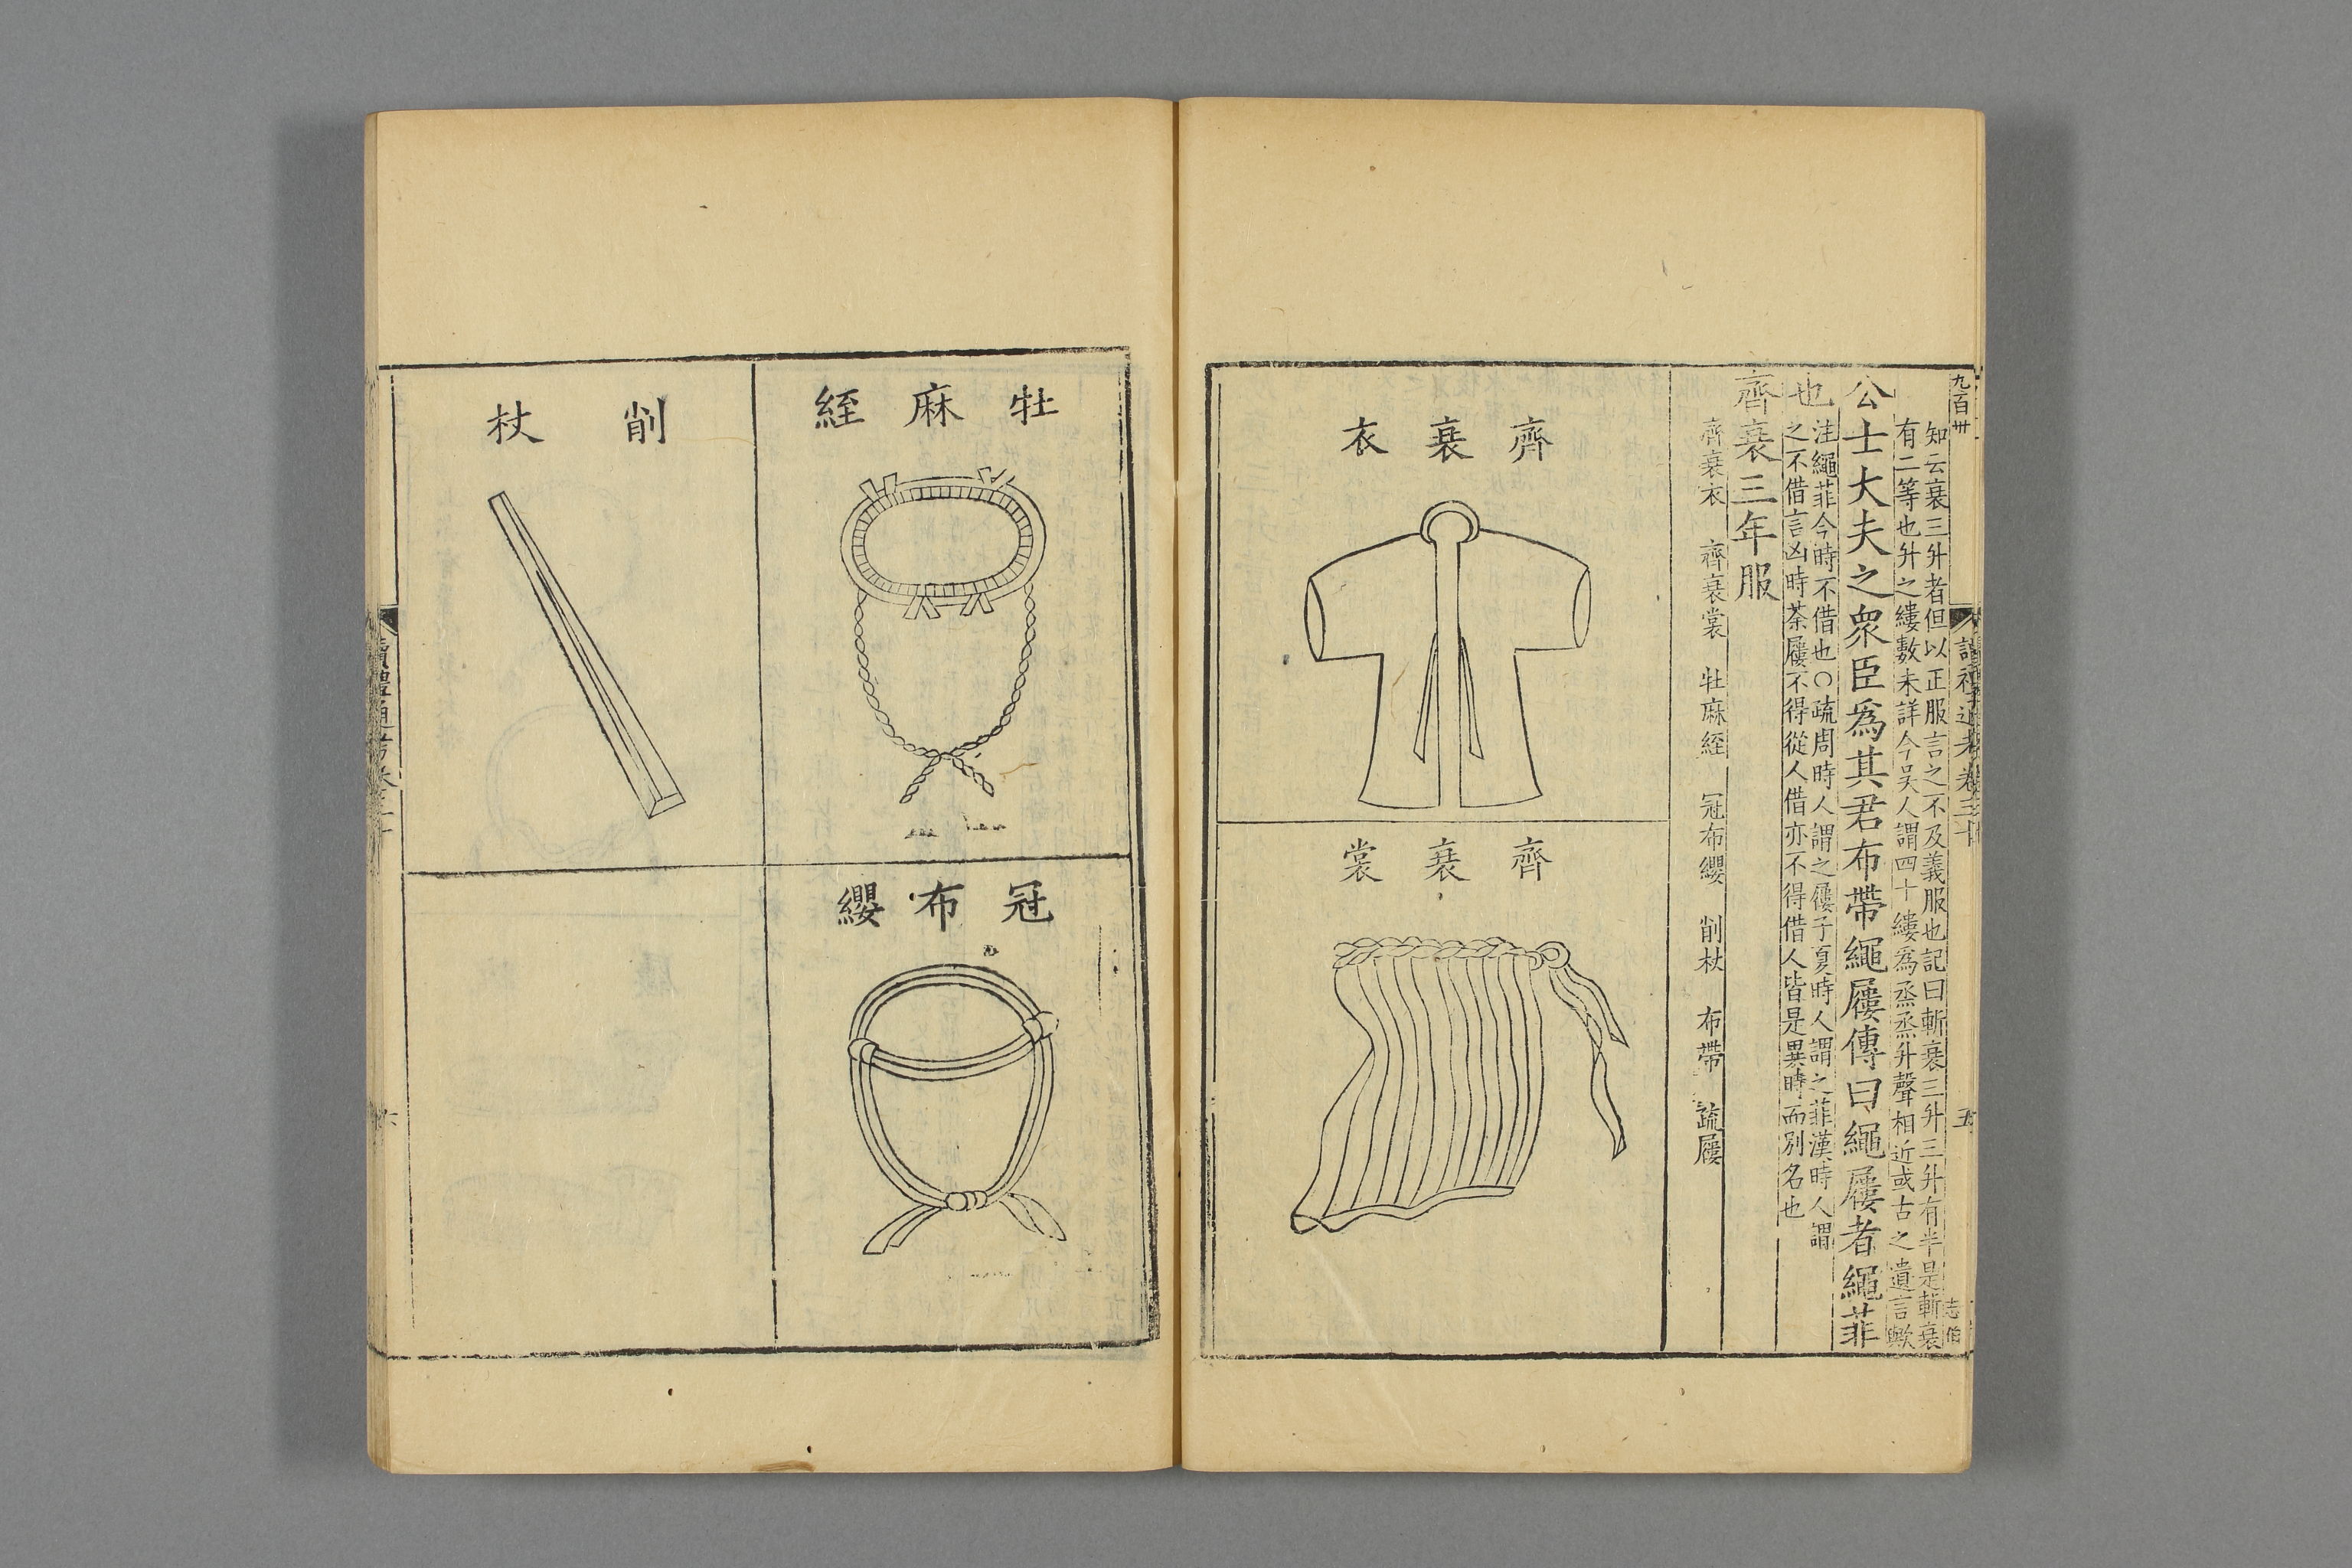 九百卅
讀禮通考卷三十
五
志伯
知云衰三升者但以正服言之不及義服也記曰斬衰三升三升有半是斬衰
有二等也升之縷數未詳今吳人謂四十縷爲烝烝升聲相近或古之遺言歟
公士大夫之衆臣爲其君布帶繩屨傳曰繩屨者繩菲
也
注繩菲今時不借也○疏周時人謂之屨子夏時人謂之菲漢時人謂
之不借言凶時荼屨不得從人借亦不得借人皆是異時而別名也
齊衰三年服
齊衰衣 齊衰裳 牡麻絰 冠布纓 削杖 布帶 疏屨
齊衰衣
齊衰裳
牡麻絰
冠布纓
削杖
讀禮通考卷三十
六